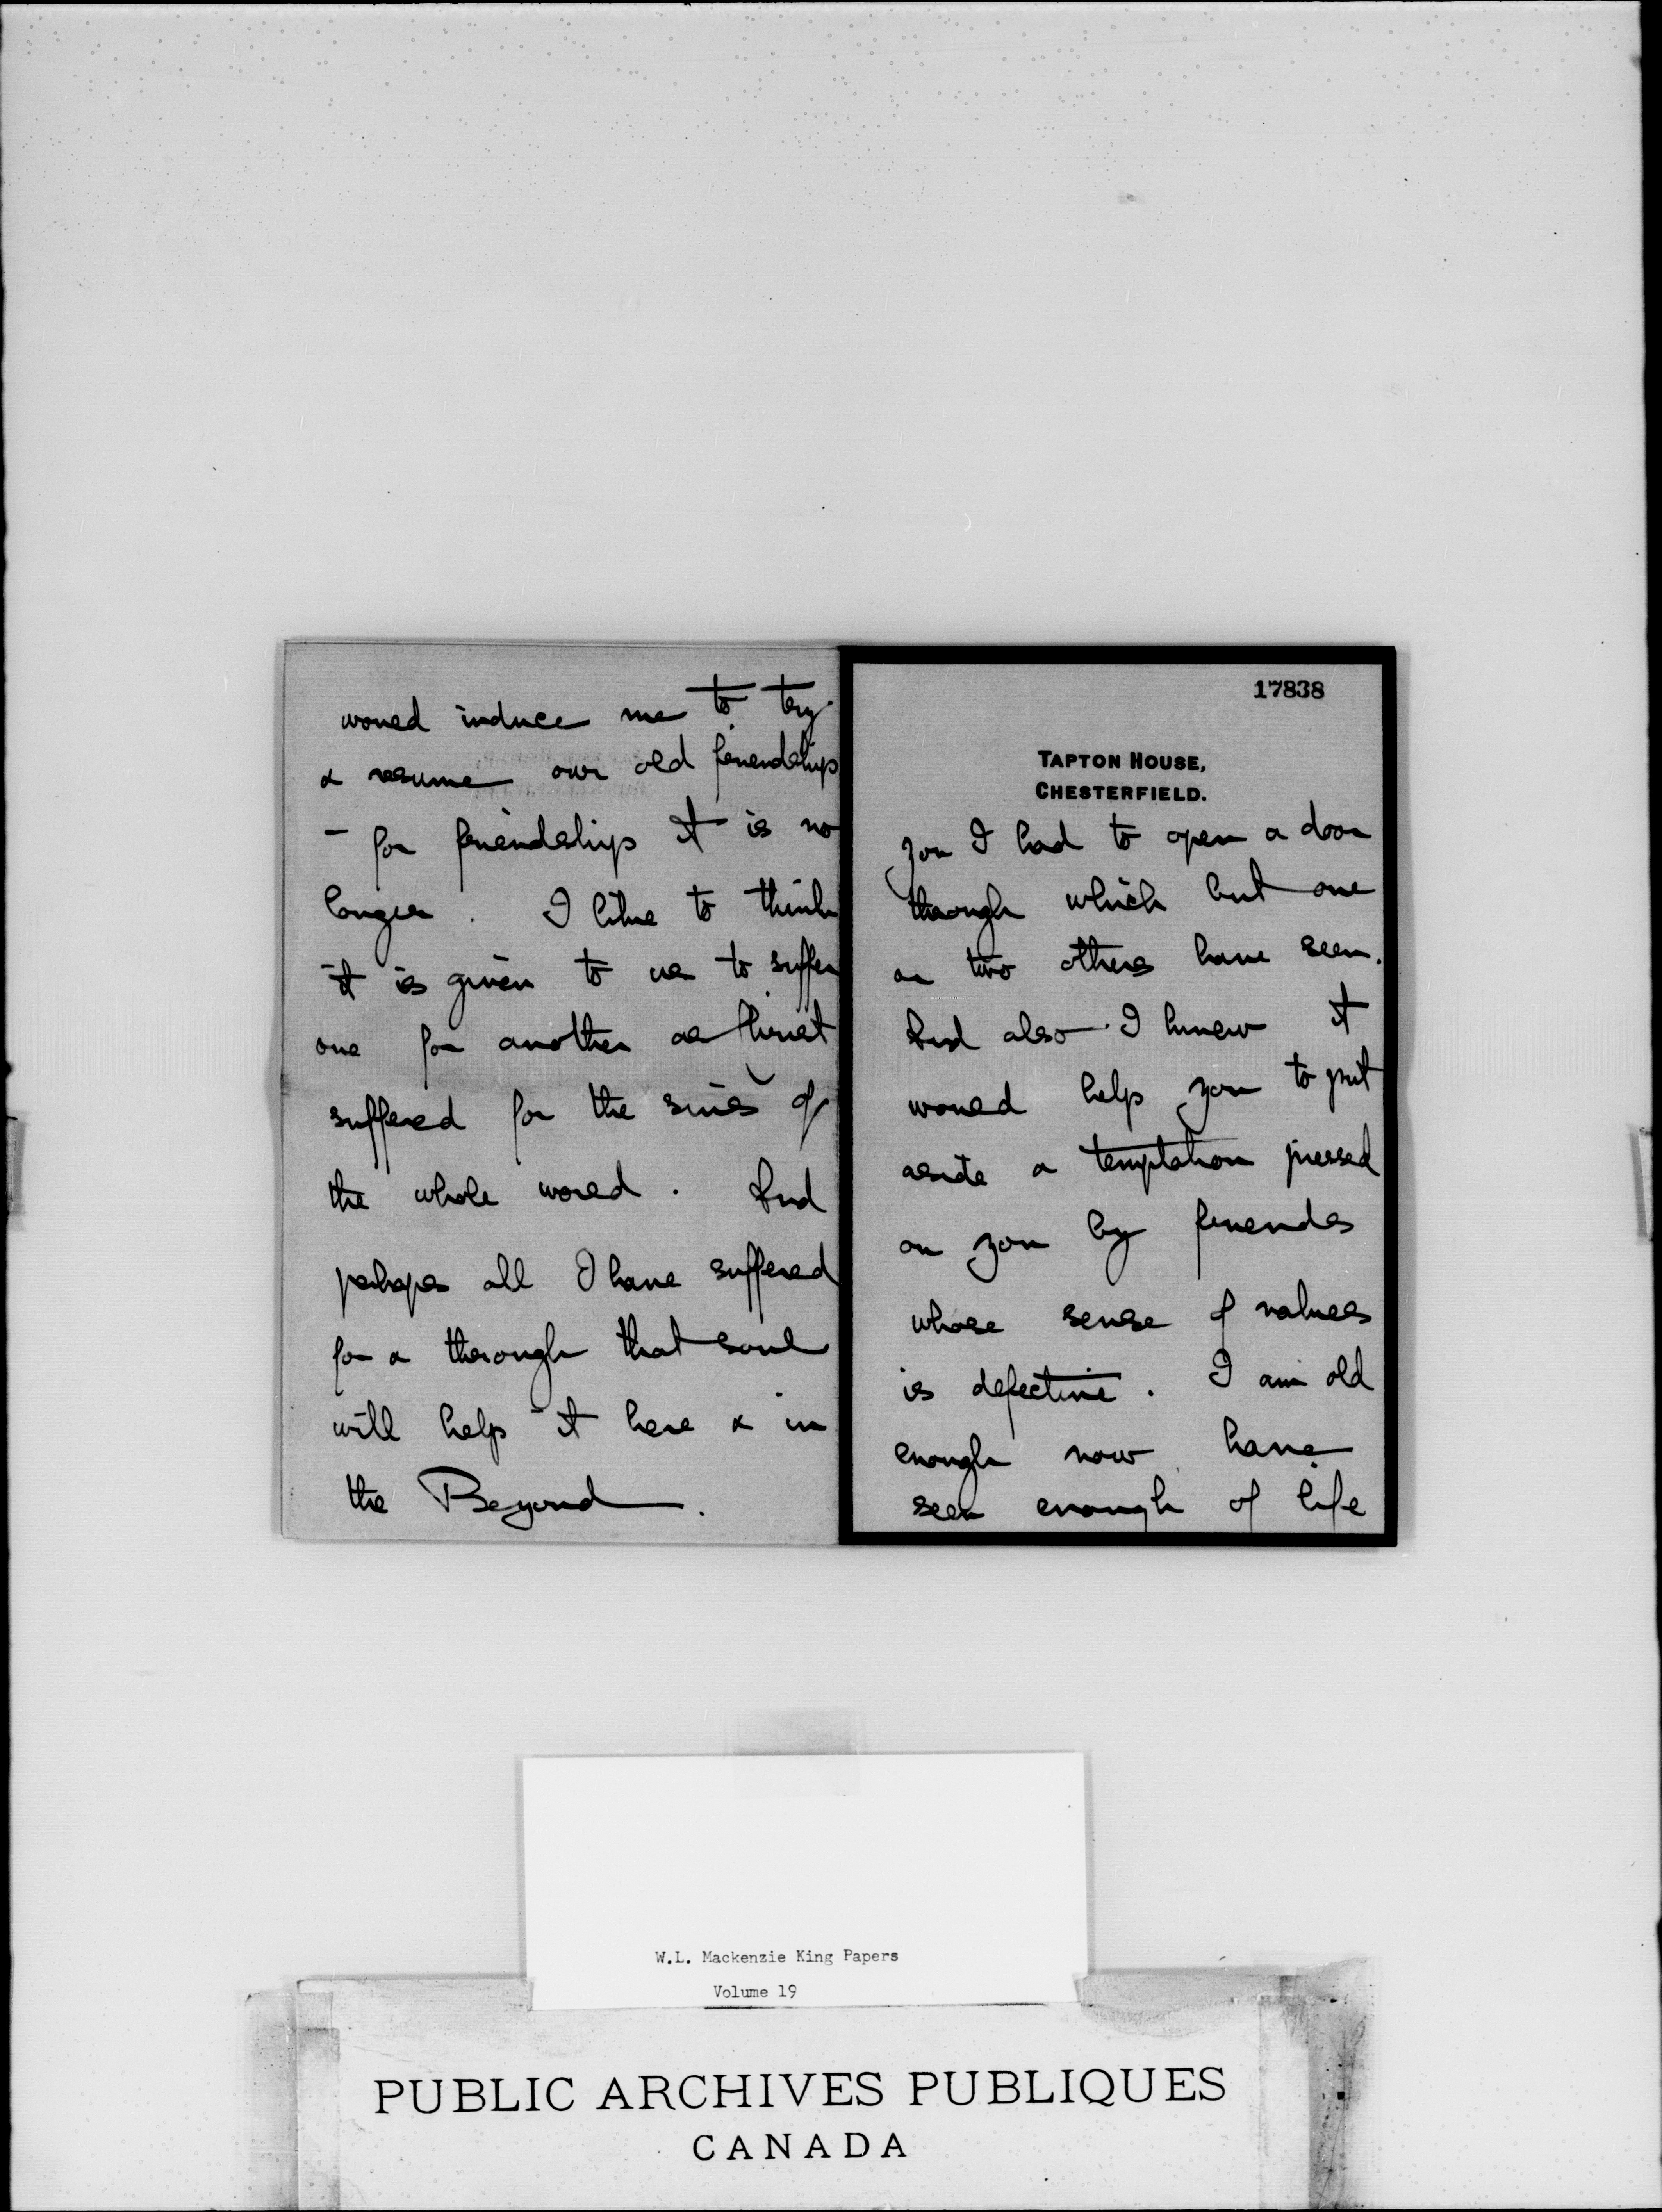 would induce me to try
& resume our old friendship
- for friendship it is no
longer. I like to think
it is given to us to suffer
one for another as Christ
suffered for the sins of
the whole world. And
perhaps all I have suffered
for & through that soul
will help it here & in
the Beyond.
17838
TAPTON HOUSE,
CHESTERFIELD.
you I had to open a door
through which but one
or two others have seen.
And also I knew it
would help you to put
aside a temptation pressed
on you by friends
whose sense of values
is defective. I am old
enough now have
seen enough of life
W.L. Mackenzie King Papers
Volume 19
PUBLIC ARCHIVES PUBLIQUES
CANADA